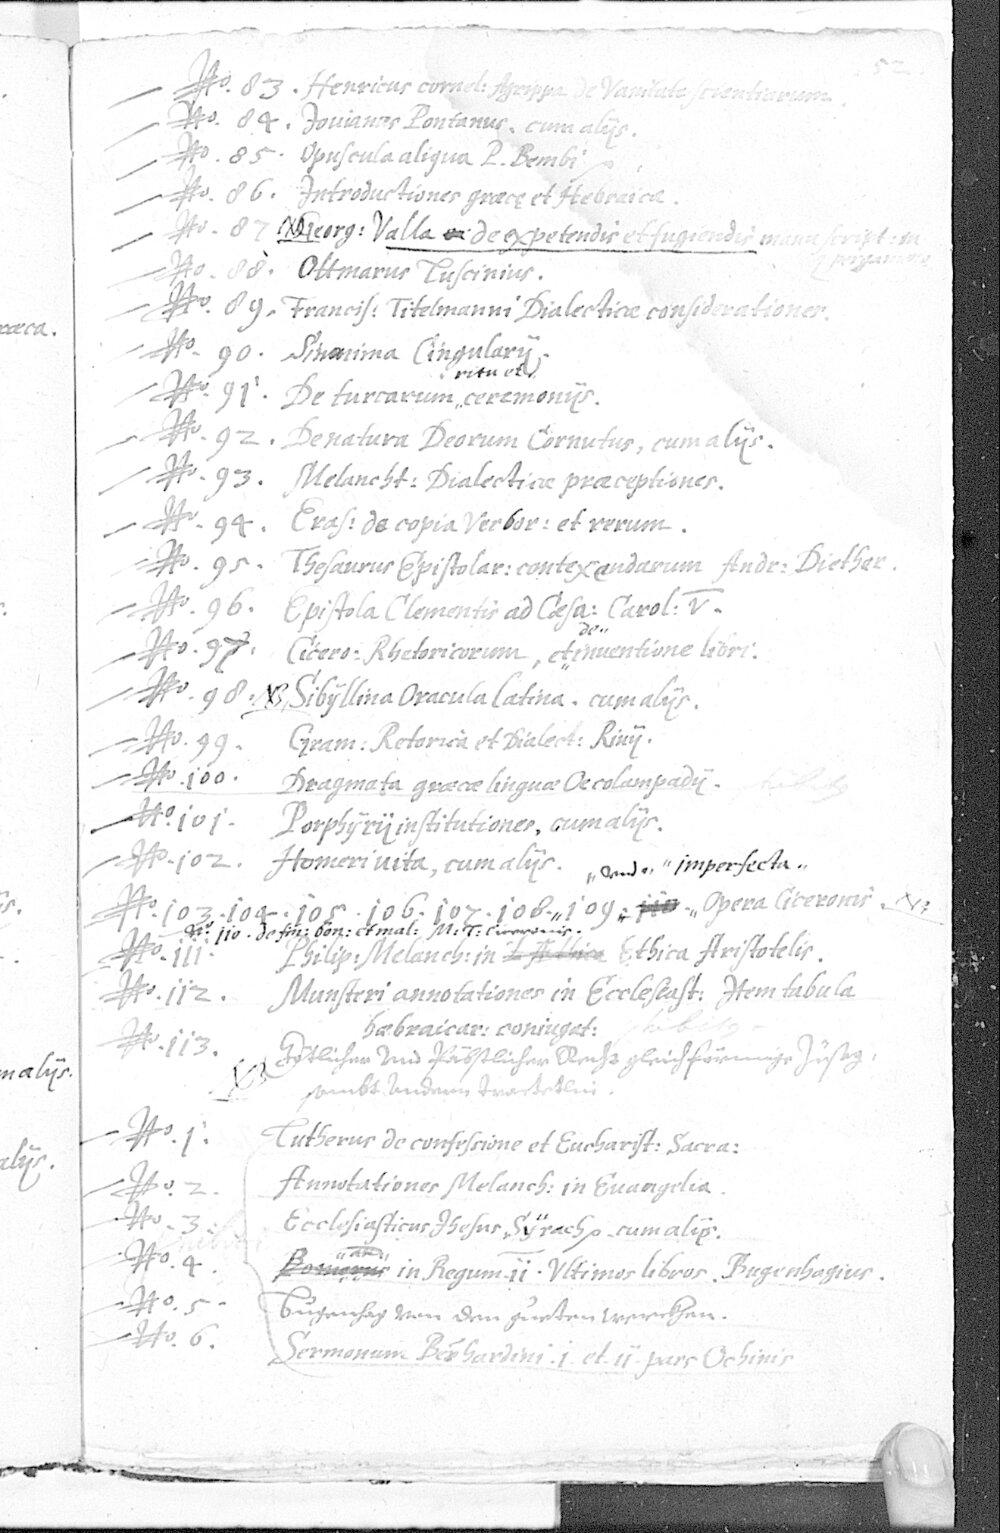 52
No. 83. Henricus cornel: Agrippa de Vanitate scientiarum.
No. 84. Jouianus Pontanus. cum alijs.
No. 85. Opuscula aliqua P. Bembi
No. 86. Introductiones græcę et Hebraicæ.
No. 87 NB Georg: Valla de expetendis et fugiendis manu script: in
pergameno
No. 88. Ottmarus Luscinius.
No. 89. Francis: Titelmanni Dialecticæ considerationes.
No. 90. Sinonima Cingularij.
ritu et
No. 91. De turcarum ceremonijs.
No. 92. De natura Deorum Cornutus, cum alijs.
No. 93. Melancht: Dialecticæ præceptiones.
No. 94. Eras: de copia Verbor: et rerum.
No. 95. Thesaurus Epistolar: contexendarum Andr: Diether.
No. 96. Epistola Clementis ad Cæsa: Carol: V.
de
No. 97. Cicero: Rhetoricorum, et inuentione libri.
No. 98. NB Sibÿllina Oracula latina. cum alijs.
No. 99. Gram: Retorica et Dialect: Riuij.
No. 100. Dragmata græcæ linguæ Oecolampadij.
No. 101. Porphÿrij institutiones, cum alijs.
No. 102. Homeri uita, cum alijs. imperfecta
No. 103. 104. 105. 106. 107. 108. 109. 110 Opera Ciceronis. NB
No. 110. de fin: bon: et mal: M: T: Ciceronis.
No. 111. Philip: Melanch: in Ethica Aristotelis.
No. 112. Munsteri annotationes in Ecclesiast: Item tabula
hæbraicar: coniugat:
No. 113. Götlicher und Päbstlicher Recht gleichförmige
NB sambt andern tractetlin.
No. 1. Lutherus de confessione et Eucharist: Sacra:
No. 2. Annotationes Melanch: in Euangelia.
No. 3. Ecclesiasticus Jhesus Sÿrach. cum alijs.
No. 4. in Regum ii. Vltimos libros. Bugenhagius.
No. 5. Bugenhag von den guten werckhen.
No. 6. Sermonum Bernhardini i et ii pars Ochinis
ræca.
m alijs.
alijs.